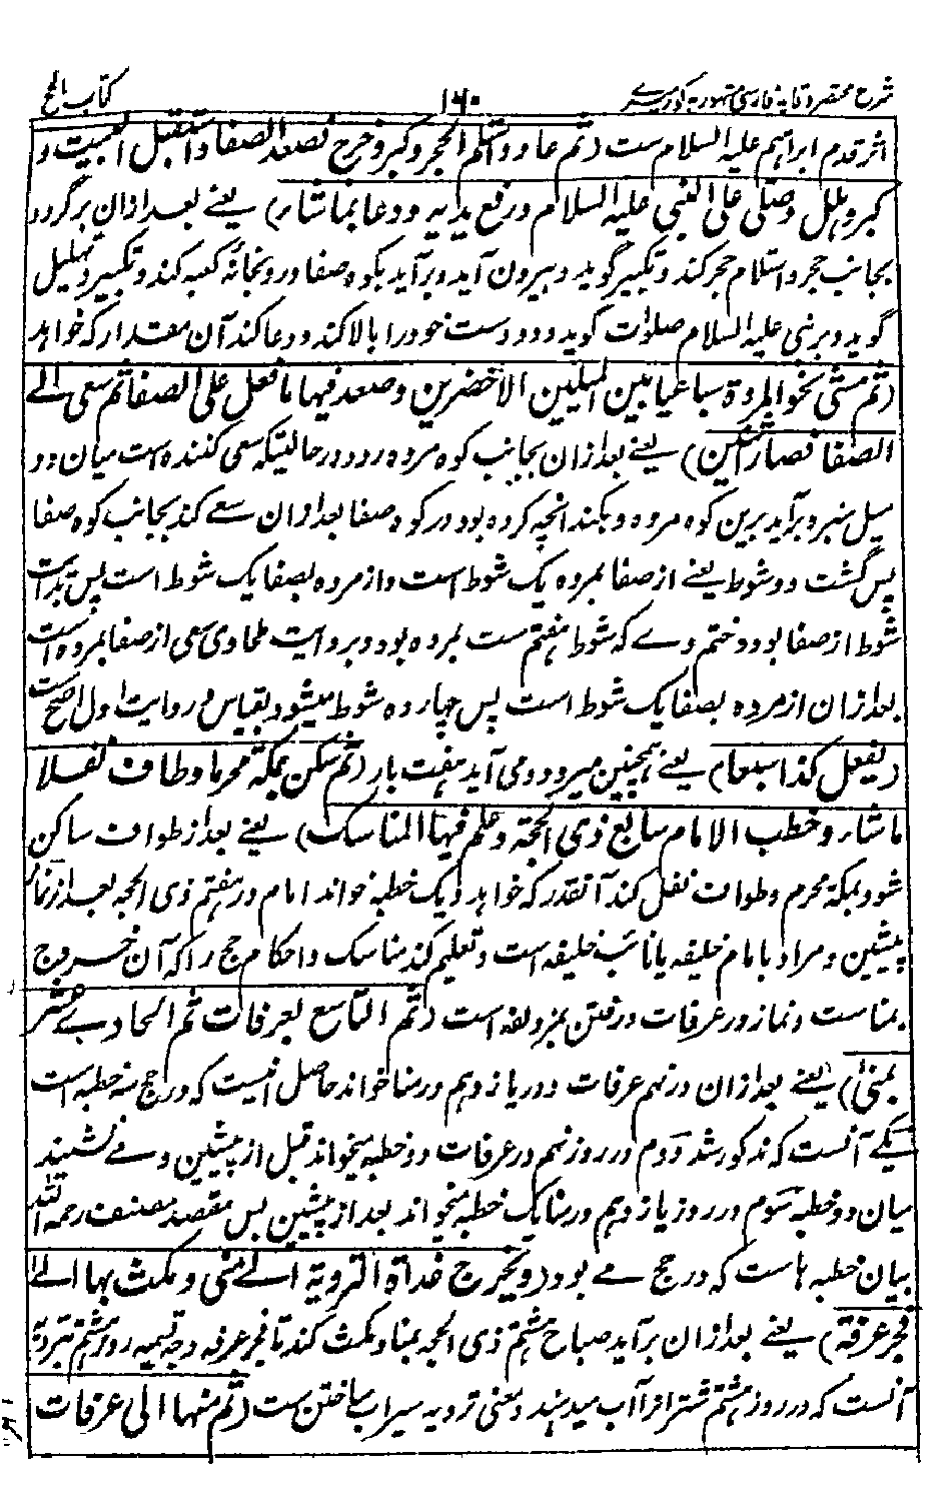 شرح مختصر وقایه فارسی مشهور به کورسیری ۱۶۰ کتاب الحج
اثر قدم ابراہیم علیہ السلام ست (ثم عاد واستلم الحجر وکبر وخرج فصعد الصفا واستقبل البیت و
کبر وہلل وصلی علی النبی علیہ السلام ورفع یدیہ ودعا بما شاء) یعنے بعد ازان برگردد
بجانب حجر و استلام حجر کند و تکبیر گوید و بیرون آید و برآید بکوہ صفا و رو بخانہ کعبہ کند و تکبیر و تہلیل
گوید و بر نبی علیہ السلام صلوات گوید و دو دست خود را بالا کند و دعا کند آن مقدار کہ خواہد
(ثم مشی نحو المروة ساعیا بین المیلین الاخضرین وصعد فیہا ما فعل علی الصفا ثم سعی الے
الصفا فصار شوطین) یعنے بعد ازان بجانب کوہ مروہ رود در حالتیکہ سعی کنندہ است میان دو
میل سبز و برآید برین کوہ مروہ و بکند انچہ کردہ بود در کوہ صفا بعد ازان سعے کند بجانب کوہ صفا
پس گشت دو شوط یعنے از صفا بمروہ یک شوط است و از مروہ بصفا یک شوط است پس بدایت
شوط از صفا بود و ختم وے کہ شوط ہفتم ست بمروہ بود و بروایت طحاوی سعی از صفا بمروہ است
بعد ازان از مروہ بصفا یک شوط است پس چہاردہ شوط میشود بقیاس و روایت اول اصح ست
(یفعل کذا سبعا) یعنے ہمچنین میرود و می آید ہفت بار (ثم سکن بمکة محرما وطاف نفلا
ما شاء وخطب الامام سابع ذی الحجة وعلم فیہا المناسک) یعنے بعد از طواف ساکن
شود بمکہ محرم و طواف نفل کند آنقدر کہ خواہد و یک خطبہ خواند امام در ہفتم ذی الحجہ بعد از نماز
پیشین و مراد بامام خلیفہ یا نائب خلیفہ است و تعلیم کند مناسک و احکام حج را کہ آن خروج
بمناست و نماز در عرفات و رفتن بمزدلفہ است (ثم التاسع بعرفات ثم الحادی عشر
بمنی) یعنے بعد ازان در نہم عرفات و در یازدہم در منا خواند حاصل اینست کہ در حج سہ خطبہ است
یکے آنست کہ مذکور شد دوم در روز نہم در عرفات دو خطبہ میخواند قبل از پیشین و مے نشیند
میان دو خطبہ سوم در روز یازدہم در منا یک خطبہ میخواند بعد از پیشین پس مقصد مصنف رحمہ اللہ
بیان خطبہ ہاست کہ در حج مے بود (ویخرج غداة الترویة الے منی ومکث بہا الے
فجر عرفة) یعنے بعد ازان برآید صباح ہشتم ذی الحجہ بمنا و مکث کند تا فجر عرفہ وجہ تسمیہ روز ہشتم بترویہ
آنست کہ در روز ہشتم شتران را آب میدہند و معنی ترویہ سیراب ساختن ست (ثم منہا الی عرفات